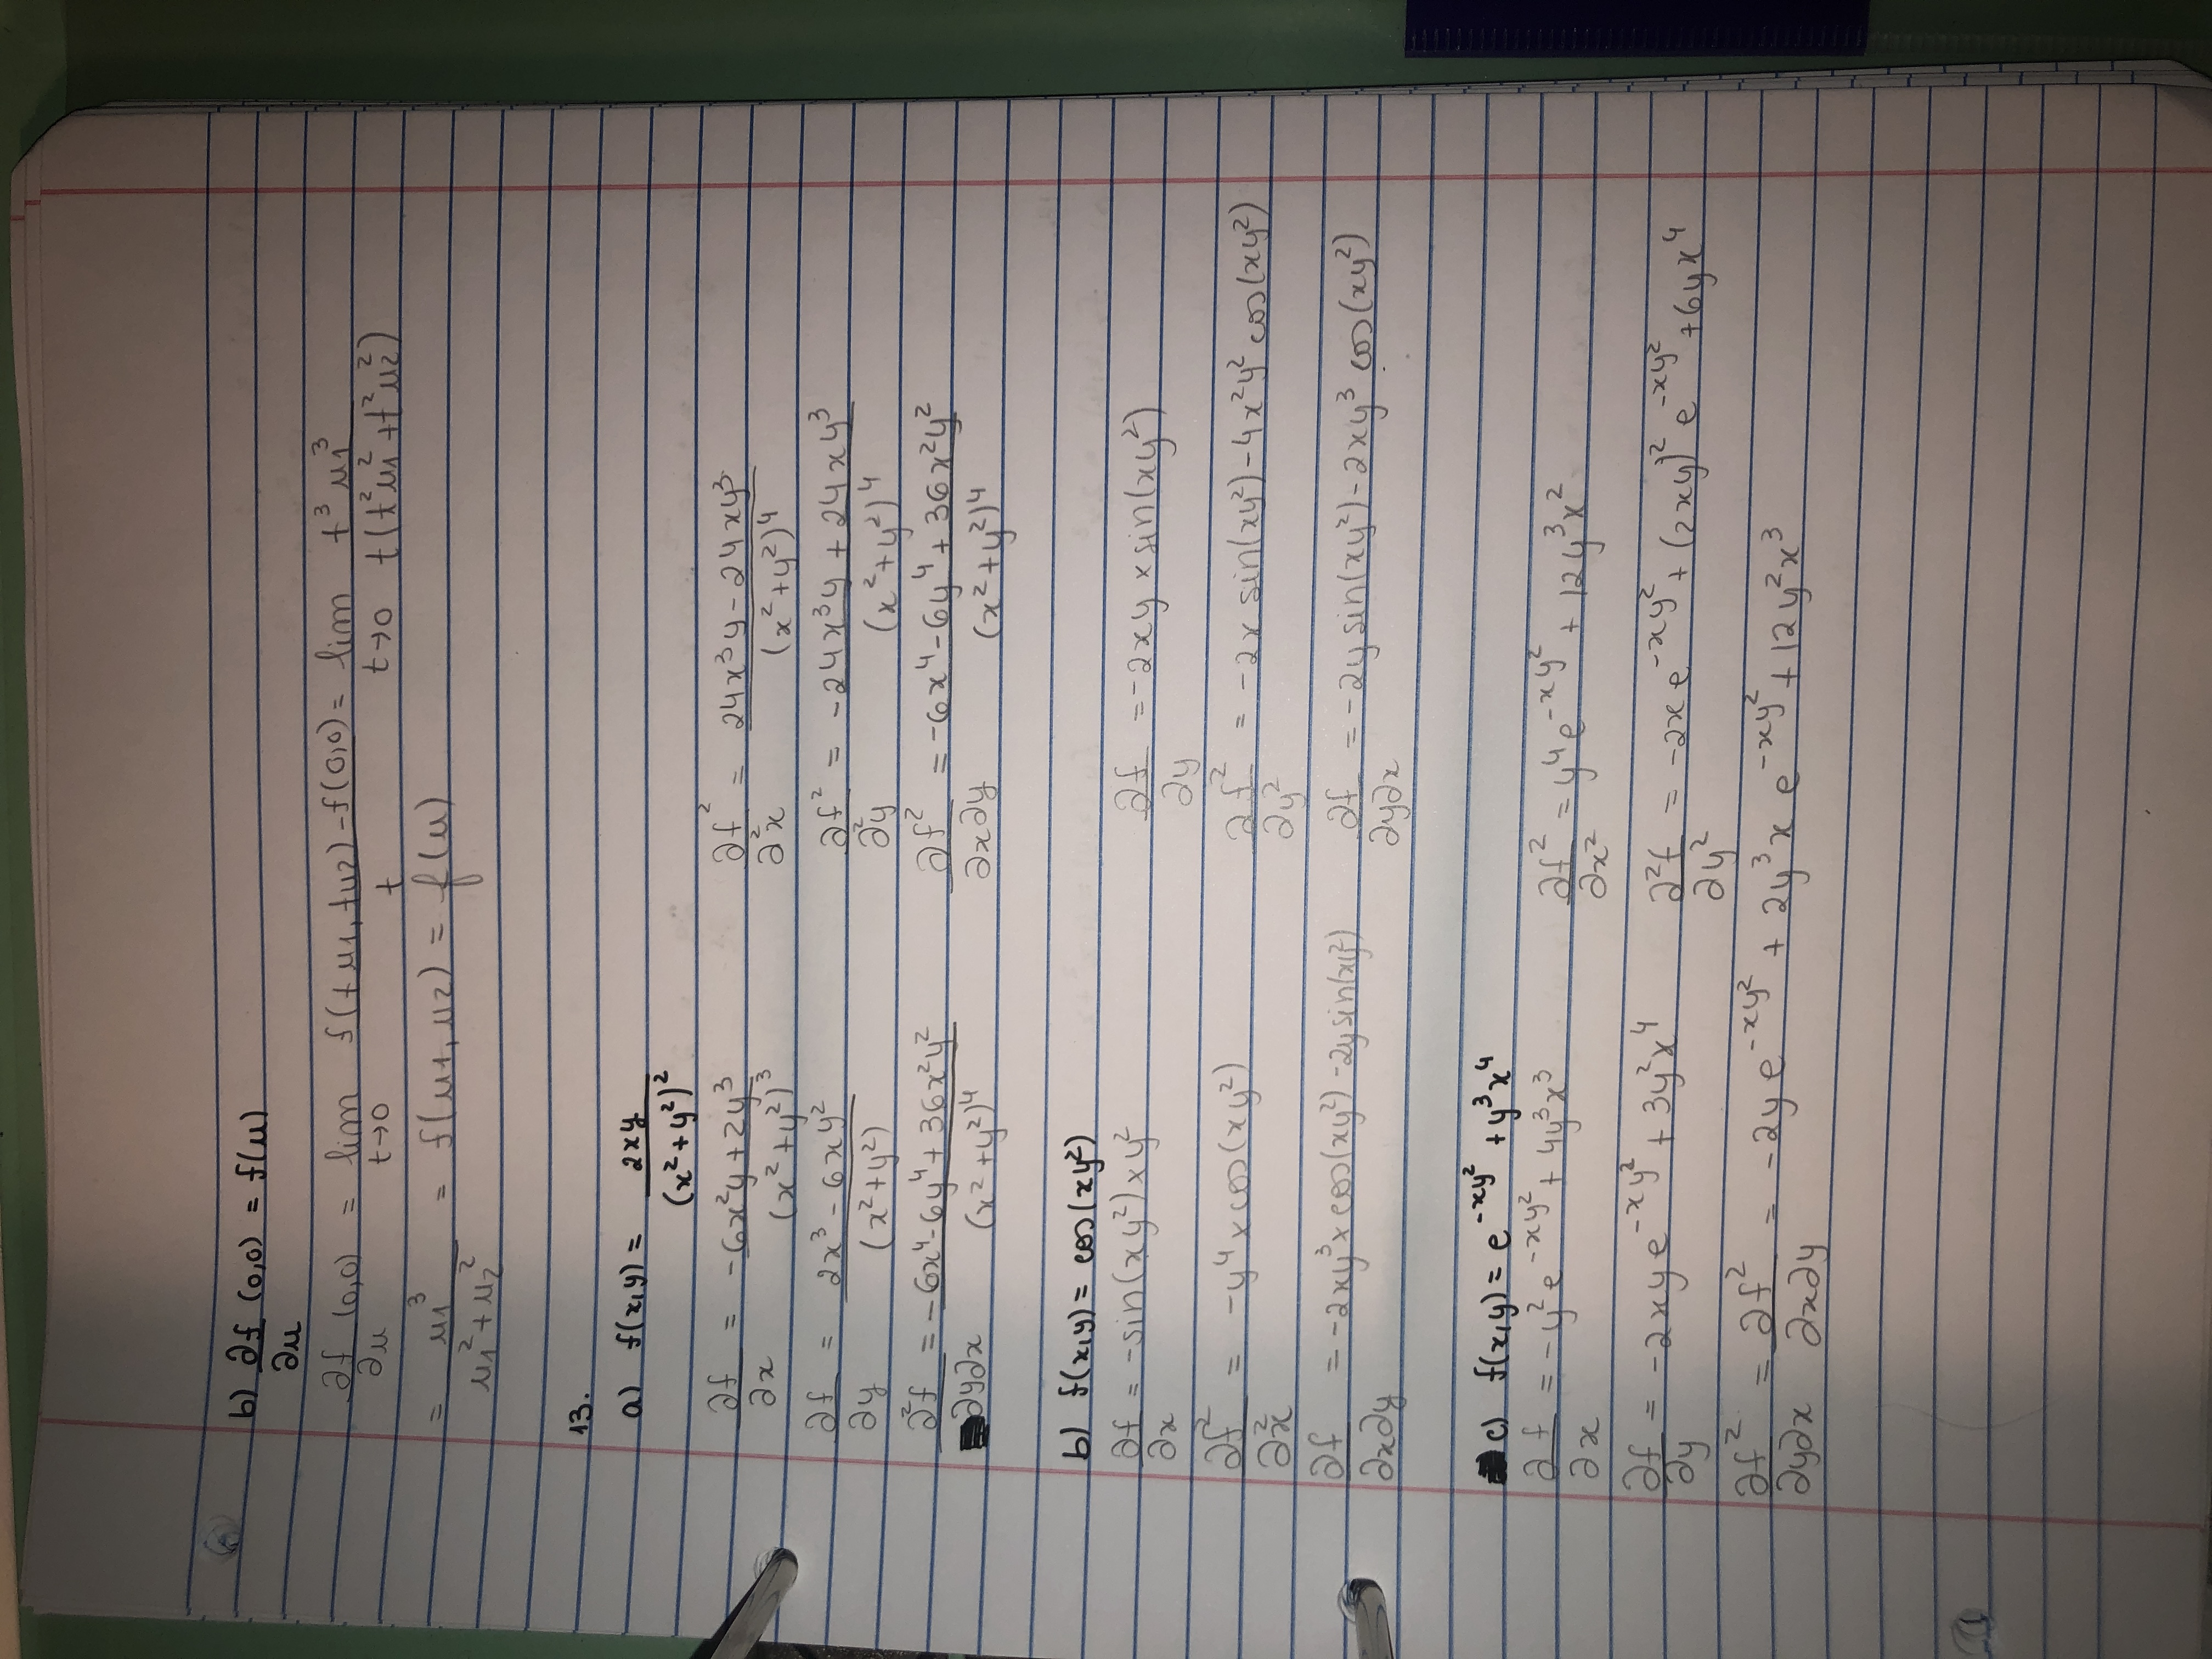 b) ∂f/∂u (0,0) = f(u)
∂f/∂u (0,0) = lim t→0 (f(tu1, tu2) - f(0,0))/t = lim t→0 t³u1³/(t(t²u1²+t²u2²))
= u1³/(u1²+u2²) = f(u1, u2) = f(u)
13.
a) f(x,y) = 2xy/(x²+y²)²
∂f/∂x = (-6x²y+2y³)/(x²+y²)³ ∂f²/∂²x = (24x³y-24xy³)/(x²+y²)⁴
∂f/∂y = (2x³-6xy²)/(x²+y²) ∂f²/∂²y = (-24x³y+24xy³)/(x²+y²)⁴
∂²f/∂y∂x = (-6x⁴-6y⁴+36x²y²)/(x²+y²)⁴ ∂f²/∂x∂y = (-6x⁴-6y⁴+36x²y²)/(x²+y²)⁴
b) f(x,y) = cos(xy²)
∂f/∂x = -sin(xy²)×y² ∂f/∂y = -2xy×sin(xy²)
∂f²/∂²x = -y⁴×cos(xy²) ∂f²/∂y² = -2x sin(xy²)-4x²y² cos(xy²)
∂f/∂x∂y = -2xy³×cos(xy²)-2y sin(xy²) ∂f/∂y∂x = -2y sin(xy²)-2xy³ cos(xy²)
c) f(x,y) = e^(-xy²) + y³x⁴
∂f/∂x = -y²e^(-xy²) + 4y³x³ ∂f²/∂x² = y⁴e^(-xy²) + 12y³x²
∂f/∂y = -2xye^(-xy²) + 3y²x⁴ ∂²f/∂y² = -2xe^(-xy²) + (2xy)²e^(-xy²) + 6yx⁴
∂f²/∂y∂x = ∂f²/∂x∂y = -2ye^(-xy²) + 2y³xe^(-xy²) + 12y²x³